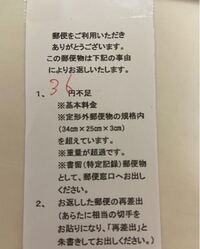 郵便をご利用いただき
ありがとうございます。
この郵便物は下記の事由
によりお返しいたします。
1、36円不足
※基本料金
※定形外郵便物の規格内
(34㎝×25㎝×3㎝)
を超えています。
※重量が超過です。
※書留(特定記録)郵便物
として、郵便窓口へお出し
ください。
2、お返しした郵便の再差出
(あらたに相当の切手を
お貼りになり、「再差出」と
朱書きしてお出しください。)